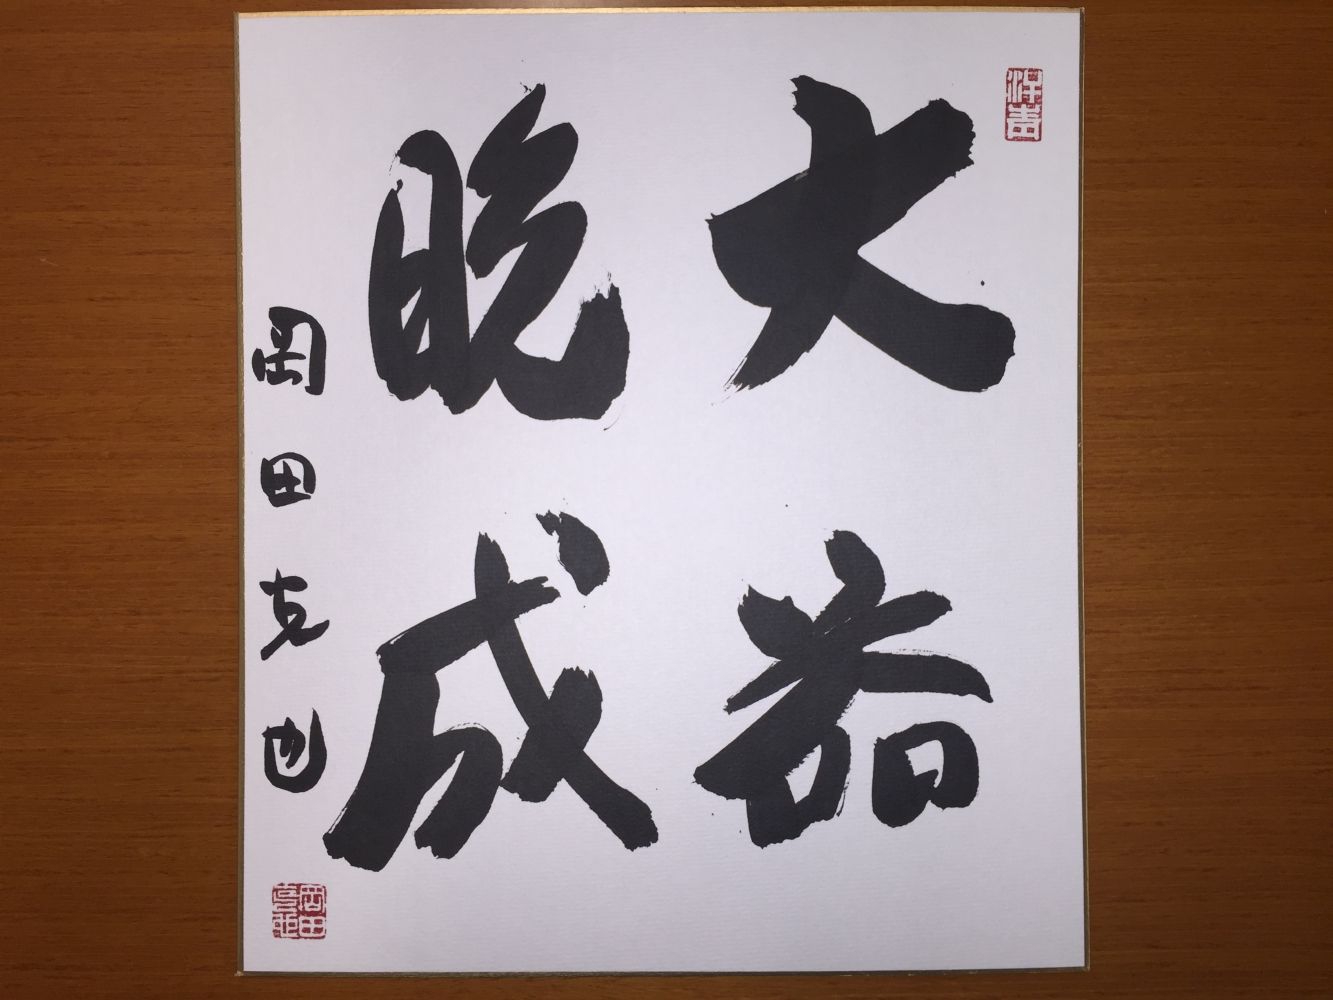 大器
晩成
岡田克也
岡田
克也